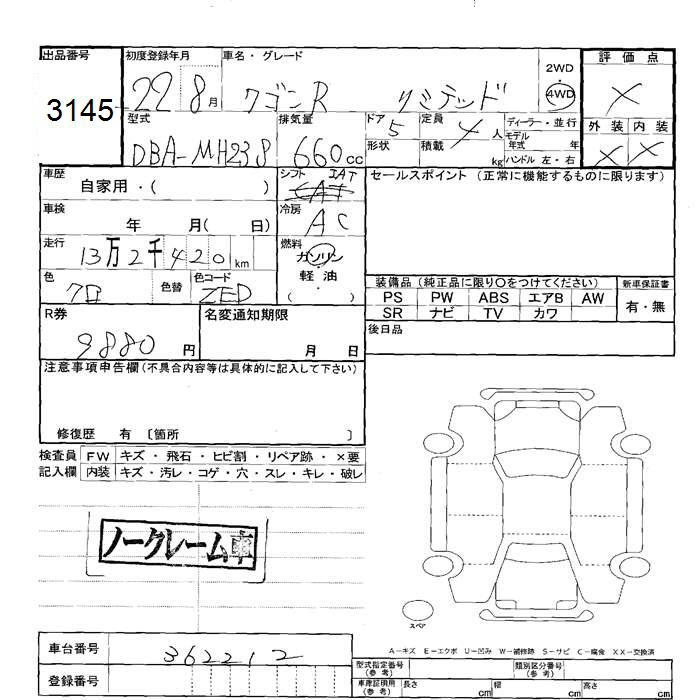 出品番号 初度登録年月 車名・グレード 2WD ・ 4WD 評価点
3145 22 8月 ワゴンR リミテッド ×
型式 排気量 ドア 5 定員 4人 ディーラー・並行 外装 内装
DBA-MH23S 660cc 形状 積載 kg モデル年式 年 ハンドル 左・右 × ×
車歴 シフト IAT セールスポイント (正常に機能するものに限ります)
自家用・( )
車検 冷房
年 月( 日) AC
走行 燃料
13万2千420km ガソリン
色 色替 色コード 軽油
ZED ( )
装備品 (純正品に限り○をつけてください) 新車保証書
PS PW ABS エアB AW 有・無
SR ナビ TV カワ
R券 名変通知期限 後日品
9880円 月 日
注意事項申告欄(不具合内容等は具体的に記入して下さい)
修復歴 有 〔箇所 〕
検査員 FW キズ・飛石・ヒビ割・リペア跡・×要
記入欄 内装 キズ・汚レ・コゲ・穴・スレ・キレ・破レ
ノークレーム車
スペア
A-キズ E-エクボ U-凹み W-補修跡 S-サビ C-腐食 XX-交換済
車台番号 362212
登録番号
型式指定番号(参考) 類別区分番号(参考)
車庫証明用(参考) 長さ cm 幅 cm 高さ cm